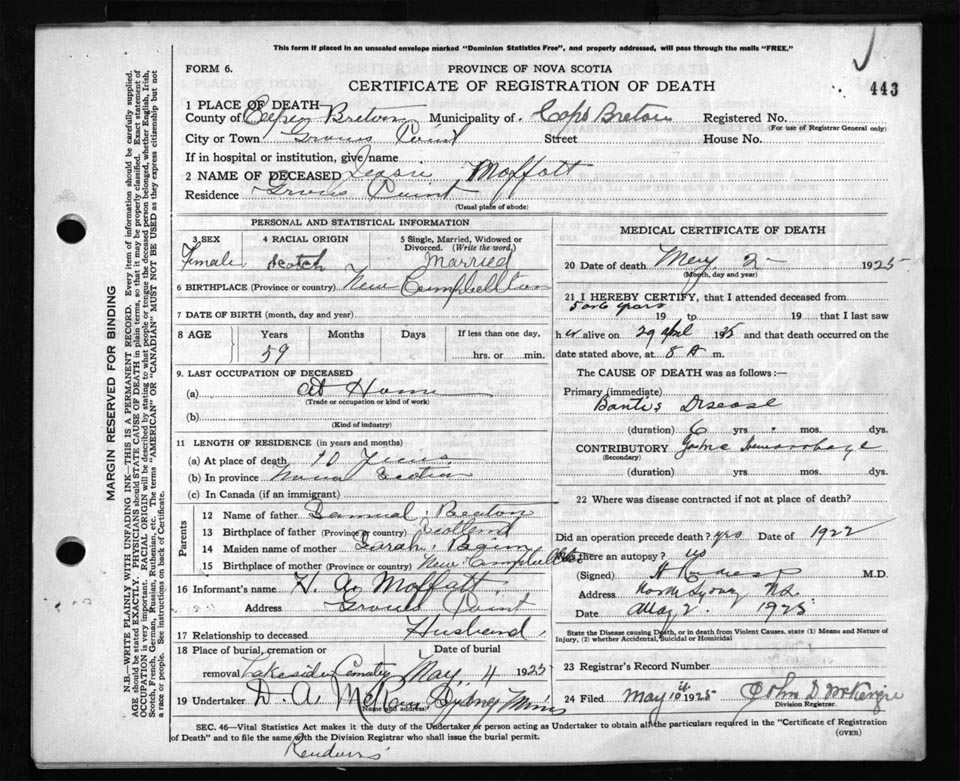 This form if placed in an unsealed envelope marked "Dominion Statistics Free", and properly addressed, will pass through the mails "FREE."
FORM 6.
PROVINCE OF NOVA SCOTIA
CERTIFICATE OF REGISTRATION OF DEATH
443
1 PLACE OF DEATH
County of Cape Breton Municipality of Cape Breton Registered No.
(For use of Registrar General only)
City or Town Groves Point Street House No.
If in hospital or institution, give name
2 NAME OF DECEASED Moffatt
Residence Groves Point
(Usual place of abode)
PERSONAL AND STATISTICAL INFORMATION
3 SEX 4 RACIAL ORIGIN 5 Single, Married, Widowed or Divorced. (Write the word.)
Female Scotch Married
6 BIRTHPLACE (Province or country) New Campbellton
7 DATE OF BIRTH (month, day and year)
8 AGE Years Months Days If less than one day,
59 hrs. or min.
9. LAST OCCUPATION OF DECEASED
(a) At Home
(Trade or occupation or kind of work)
(b)
(Kind of industry)
11 LENGTH OF RESIDENCE (in years and months)
(a) At place of death 10 Years
(b) In province Nova Scotia
(c) In Canada (if an immigrant)
Parents
12 Name of father Samuel
13 Birthplace of father (Province or country) Scotland
14 Maiden name of mother Sarah
15 Birthplace of mother (Province or country) New Campbellton
16 Informant's name H. A. Moffatt
Address Groves Point
17 Relationship to deceased Husband
18 Place of burial, cremation or removal Date of burial
Lakeside Cemetery May 4 1925
19 Undertaker D. A. Sydney Mines
(Name and address)
MEDICAL CERTIFICATE OF DEATH
20 Date of death May 2 1925
(Month, day and year)
21 I HEREBY CERTIFY, that I attended deceased from
5 or 6 years 19 to 19 that I last saw
h er alive on 29 April 1925 and that death occurred on the
date stated above, at 8 A m.
The CAUSE OF DEATH was as follows:—
Primary (immediate)
Banti's Disease
(duration) 6 yrs. mos. dys.
CONTRIBUTORY Hemorrhage
(Secondary)
(duration) yrs. mos. dys.
22 Where was disease contracted if not at place of death?
Did an operation precede death? yes Date of 1922
Was there an autopsy? no
(Signed) M.D.
Address North Sydney N.S.
Date May 2. 1925
State the Disease causing Death, or in death from Violent Causes, state (1) Means and Nature of Injury, (2) whether Accidental, Suicidal or Homicidal
23 Registrar's Record Number
24 Filed May 1925 John D McKenzie
Division Registrar.
SEC. 46—Vital Statistics Act makes it the duty of the Undertaker or person acting as Undertaker to obtain all the particulars required in the "Certificate of Registration
of Death" and to file the same with the Division Registrar who shall issue the burial permit.
(OVER)
MARGIN RESERVED FOR BINDING
N.B.—WRITE PLAINLY WITH UNFADING INK—THIS IS A PERMANENT RECORD. Every item of information should be carefully supplied.
AGE should be stated EXACTLY. PHYSICIANS should STATE CAUSE OF DEATH in plain terms, so that it may be properly classified. Exact statement of
OCCUPATION is very important. RACIAL ORIGIN will be described by stating to what people or tongue the deceased person belonged, whether English, Irish,
Scotch, French, German, Russian, Ruthenian, etc. The terms "AMERICAN" or "CANADIAN" MUST NOT BE USED as they express citizenship but not
a race or people. See instructions on back of Certificate.